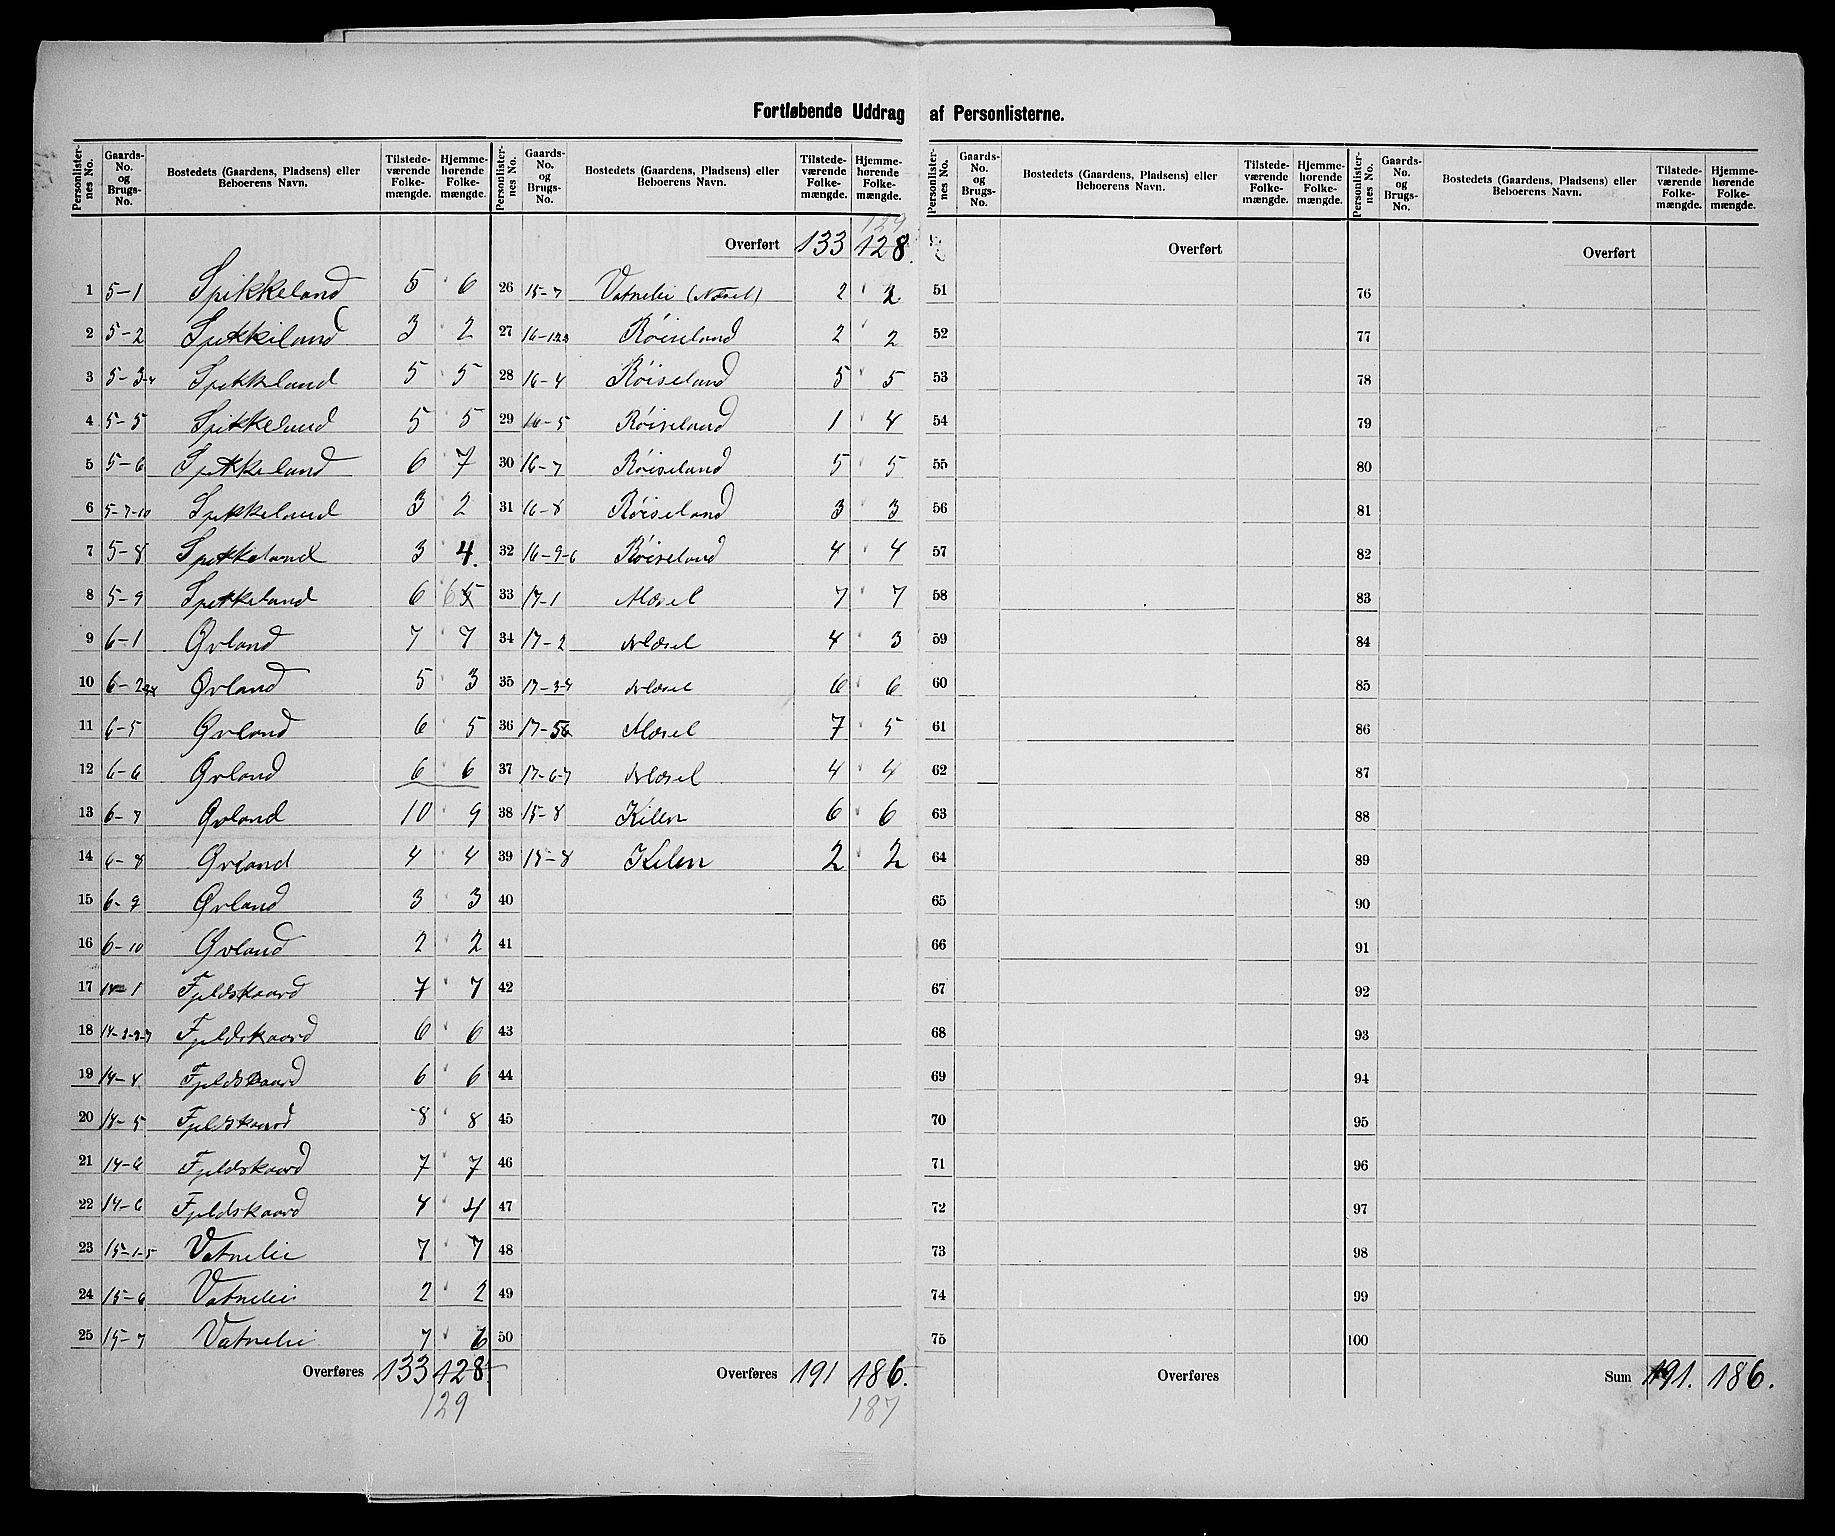 Fortløbende Uddrag af Personlisterne.
Personlister-nes No. Gaards-No. og Brugs-No. Bostedets (Gaardens, Pladsens) eller Beboerens Navn. Tilstede-værende Folke-mængde. Hjemme-hørende Folke-mængde.
1 5-1 Spikkeland 5 6
2 5-2 Spikkeland 3 2
3 5-3-4 Spikkeland 5 5
4 5-5 Spikkeland 5 5
5 5-6 Spikkeland 6 7
6 5-7-10 Spikkeland 3 2
7 5-8 Spikkeland 3 4.
8 5-9 Spikkeland 6 6 5
9 6-1 Øvland 7 7
10 6-2 Øvland 5 3
11 6-5 Øvland 6 5
12 6-6 Øvland 6 6
13 6-7 Øvland 10 9
14 6-8 Øvland 4 4
15 6-9 Øvland 3 3
16 6-10 Øvland 2 2
17 14-1 Fjeldskaard 7 7
18 14-2-3-7 Fjeldskaard 6 6
19 14-4 Fjeldskaard 6 6
20 14-5 Fjeldskaard 8 8
21 14-6 Fjeldskaard 7 7
22 14-6 Fjeldskaard 4 4
23 15-1-5 Vatnelie 7 7
24 15-6 Vatnelie 2 2
25 15-7 Vatnelie 7 6
Overføres 133 128.
129
Personlister-nes No. Gaards-No. og Brugs-No. Bostedets (Gaardens, Pladsens) eller Beboerens Navn. Tilstede-værende Folke-mængde. Hjemme-hørende Folke-mængde.
129
Overført 133 128.
26 15-7 Vatnelie (Næset) 2 2
27 16-1-2-3 Røiseland 2 2
28 16-4 Røiseland 5 5
29 16-5 Røiseland 1 4
30 16-7 Røiseland 5 5
31 16-8 Røiseland 3 3
32 16-9-6 Røiseland 4 4
33 17-1 Mæsel 7 7
34 17-2 Mæsel 4 3
35 17-3-4 Mæsel 6 6
36 17-5 Mæsel 7 5
37 17-6-7 Mæsel 4 4
38 15-8 Kilen 6 6
39 15-8 Kilen 2 2
40
41
42
43
44
45
46
47
48
49
50
Overføres 191 186.
187
Personlister-nes No. Gaards-No. og Brugs-No. Bostedets (Gaardens, Pladsens) eller Beboerens Navn. Tilstede-værende Folke-mængde. Hjemme-hørende Folke-mængde.
Overført
51
52
53
54
55
56
57
58
59
60
61
62
63
64
65
66
67
68
69
70
71
72
73
74
75
Overføres
Personlister-nes No. Gaards-No. og Brugs-No. Bostedets (Gaardens, Pladsens) eller Beboerens Navn. Tilstede-værende Folke-mængde. Hjemme-hørende Folke-mængde.
Overført
76
77
78
79
80
81
82
83
84
85
86
87
88
89
90
91
92
93
94
95
96
97
98
99
100
Sum 191. 186.